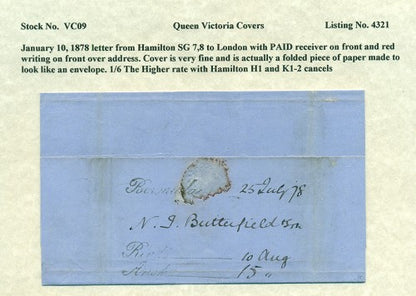 Stock No. VC09 Queen Victoria Covers Listing No. 4321
January 10, 1878 letter from Hamilton SG 7,8 to London with PAID receiver on front and red
writing on front over address. Cover is very fine and is actually a folded piece of paper made to
look like an envelope. 1/6 The Higher rate with Hamilton H1 and K1-2 cancels
Bermuda 25 July 78
N. T. Butterfield & Son
10 Aug
15 "